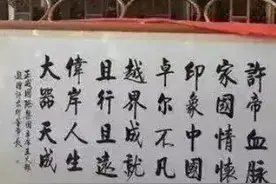 許帝血脉
家國情懷
印象中國
卓尔不凡
越界成就
且行且遠
偉岸人生
大器天成